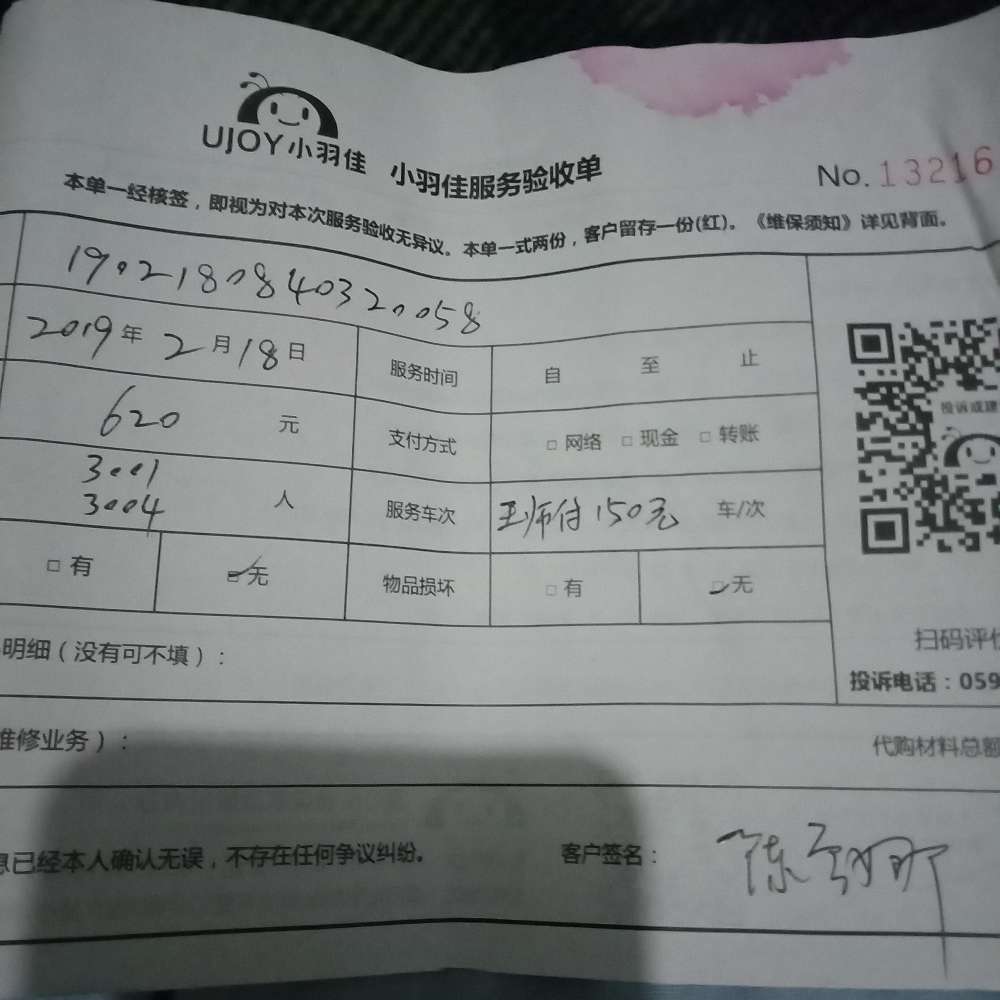 UJOY小羽佳 小羽佳服务验收单
No. 13216
本单一经核签，即视为对本次服务验收无异议。本单一式两份，客户留存一份(红)。《维保须知》详见背面。
1902180840320058
2019年 2月18日 服务时间 自 至 止
620 元 支付方式 □网络 □现金 □转账
投诉或建
3001
3004 人 服务车次 王师付150元 车/次
□有 □无 物品损坏 □有 □无
明细（没有可不填）：
扫码评价
投诉电话：059
维修业务）：
代购材料总额
息已经本人确认无误，不存在任何争议纠纷。 客户签名：